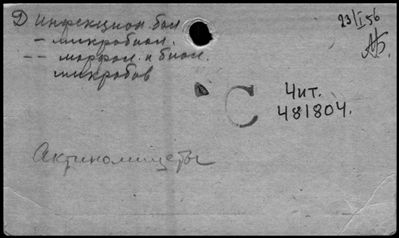 Д Инфекцион. бол.
– микробиол.
– – морфол. и биол.
микробов
23/I 56
С
Чит.
481804.
Актиномицеты